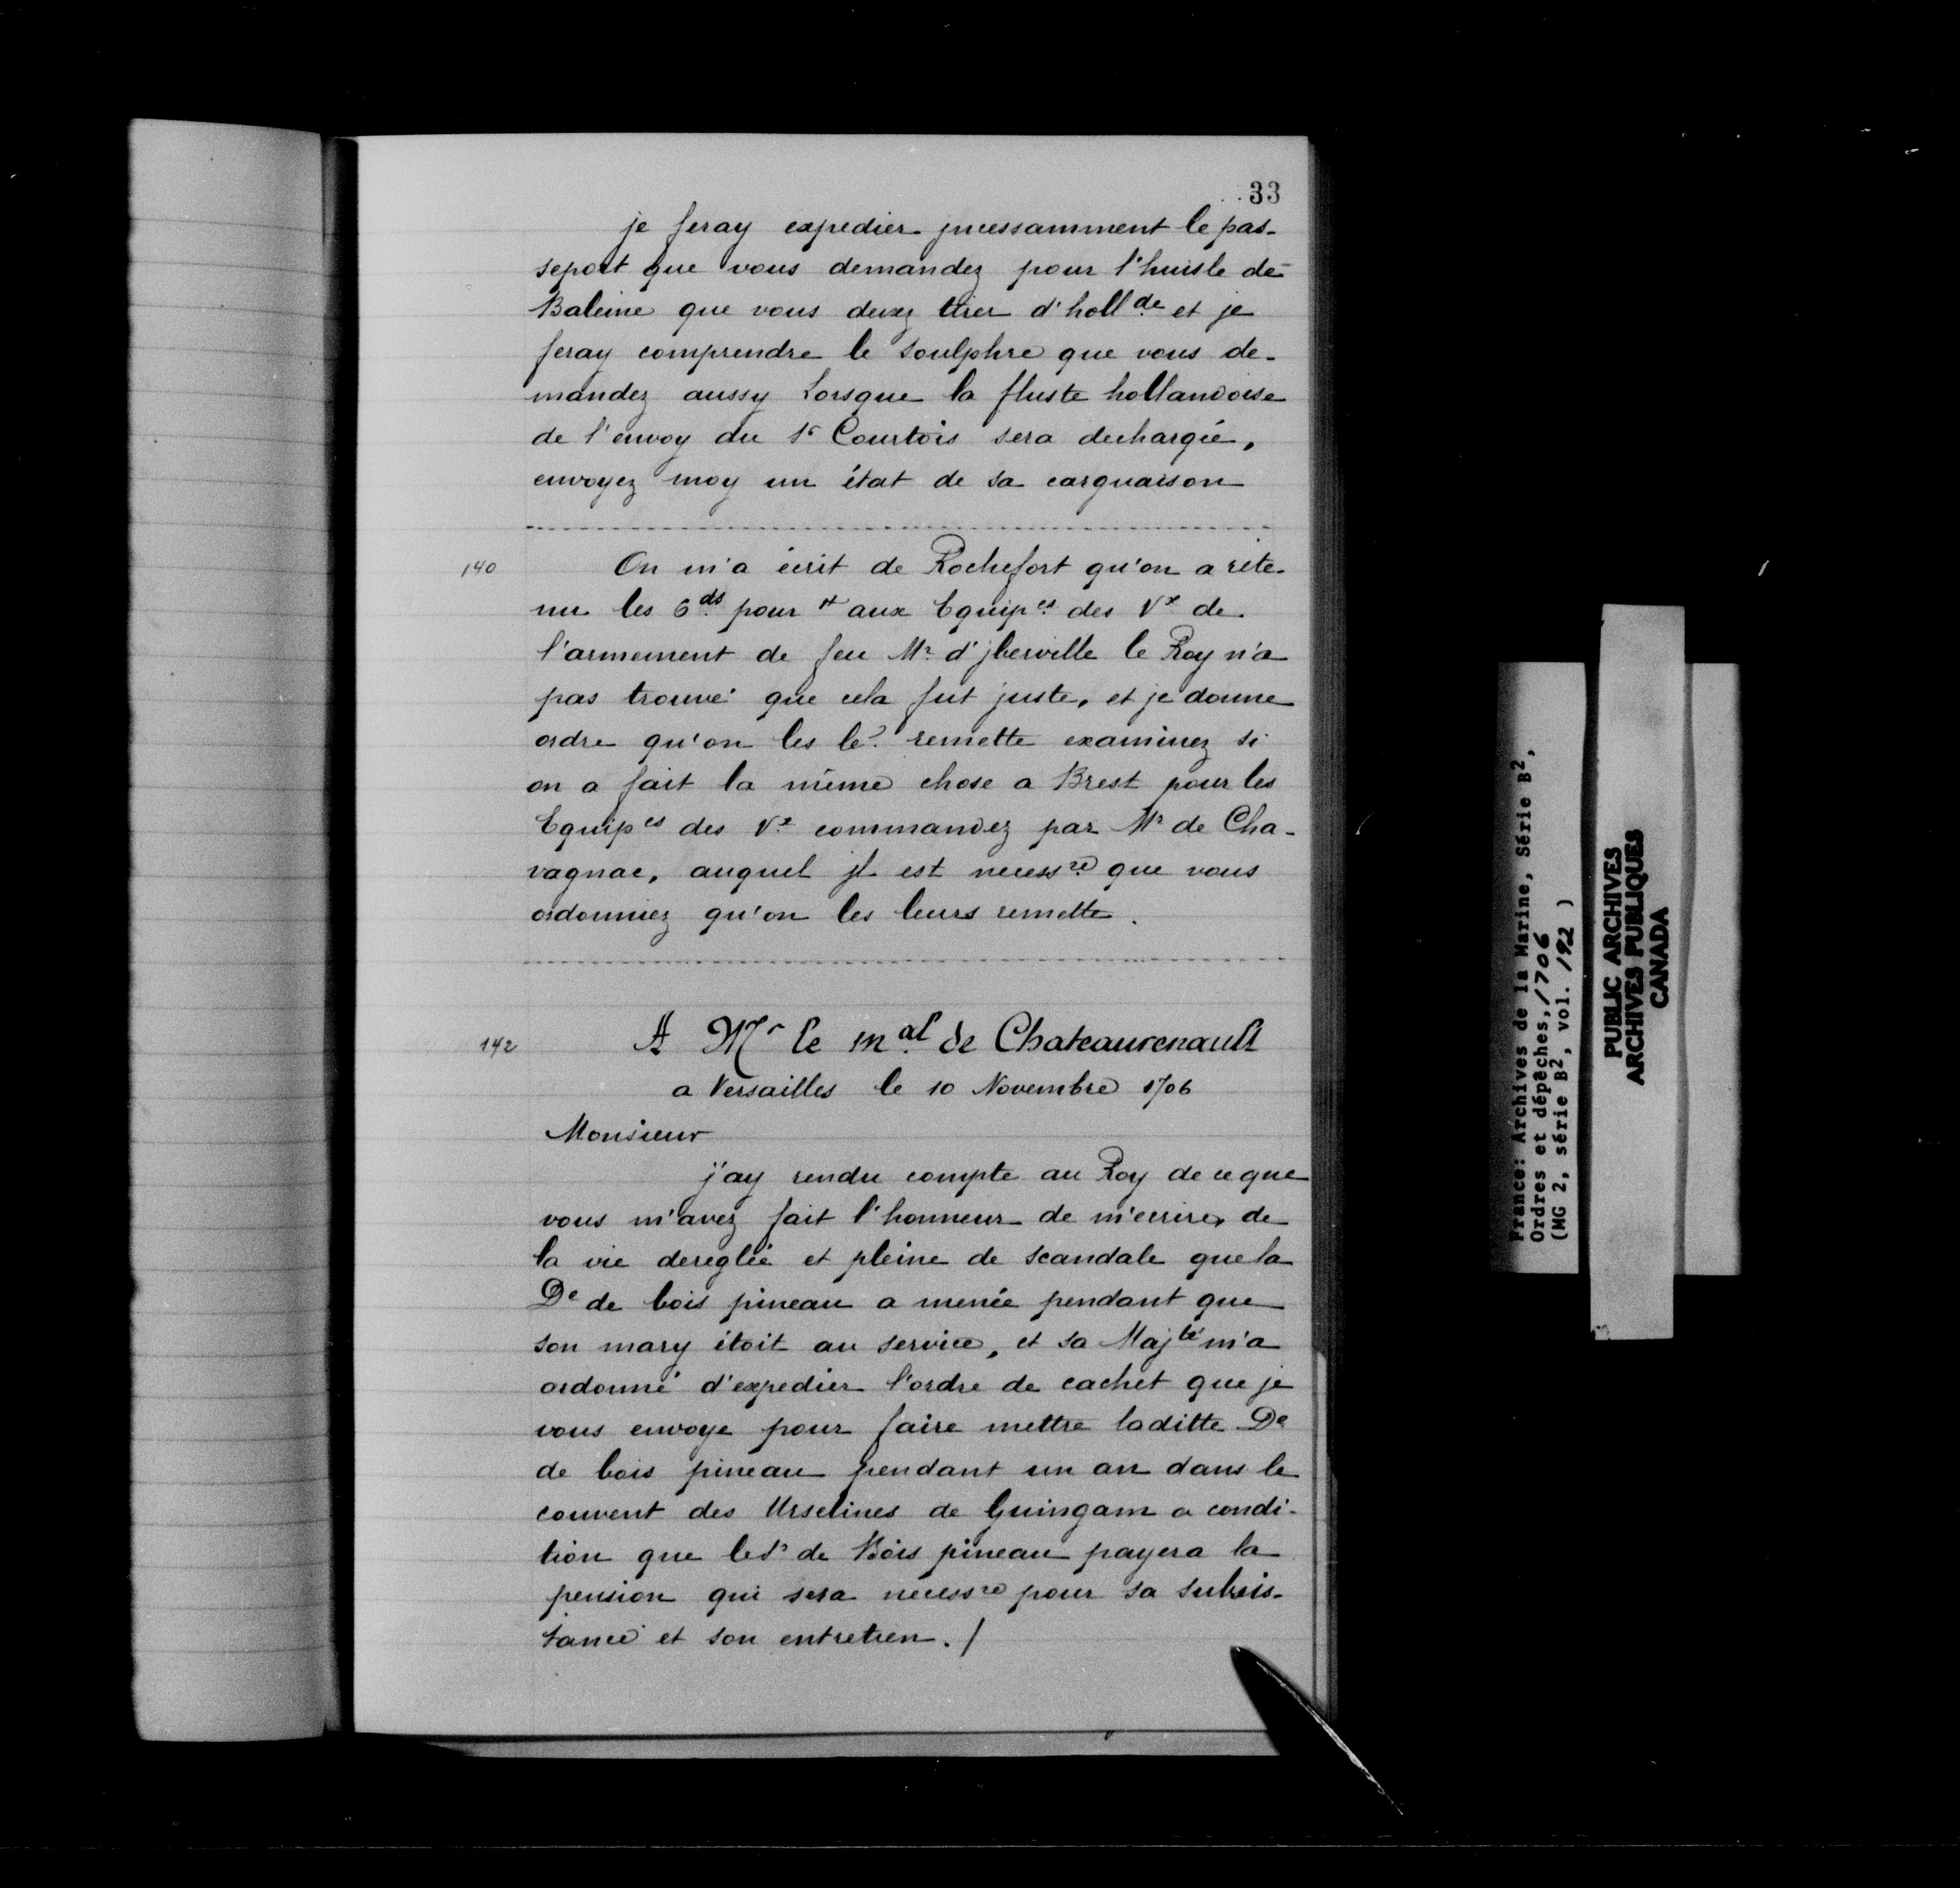 33
je feray expedier jncessamment le pas-
seport que vous demandez pour l'huisle de
Baleine que vous devez tirer d'holl.de et je
feray comprendre le soulphre que vous de-
mandez aussy Lorsque la fluste hollandoise
de l'envoy du Sr Courtois sera dechargée,
envoyez moy un état de sa carguaison
140
On m'a écrit de Rochefort qu'on a rete-
nu les 6.ds pour # aux Equip.es des V.x de
l'armement de feu Mr. d'jberville le Roy n'a
pas trouvé que cela fut juste, et je donne
ordre qu'on les le.r remette examinez si
on a fait la même chose a Brest pour les
Equip.es des V.x commandez par Mr de Cha-
vagnac, auquel jl est necess.re que vous
ordonniez qu'on les leurs remette.
142
A Mr le m.al de Chateaurenault
a Versailles le 10 Novembre 1706
Monsieur
j'ay rendu compte au Roy de ce que
vous m'avez fait l'honneur de m'ecrire, de
la vie dereglée et pleine de scandale que la
De de bois pineau a menée pendant que
son mary étoit au service, et sa Majté m'a
ordonné d'expedier l'ordre de cachet que je
vous envoye pour faire mettre laditte De
de bois pineau pendant un an dans le
couvent des Urselines de Guingam a condi-
tion que le Sr de Bois pineau payera la
pension qui sera necess.re pour sa subsis-
tance et son entretien. /
France: Archives de la Marine, Série B2,
Ordres et dépêches, 1706
(MG 2, série B2, vol. 192 )
PUBLIC ARCHIVES
ARCHIVES PUBLIQUES
CANADA